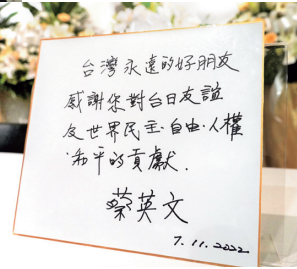 台灣永遠的好朋友
感謝您對台日友誼
及世界民主·自由·人權
·和平的貢獻.
蔡英文
7.11.2022